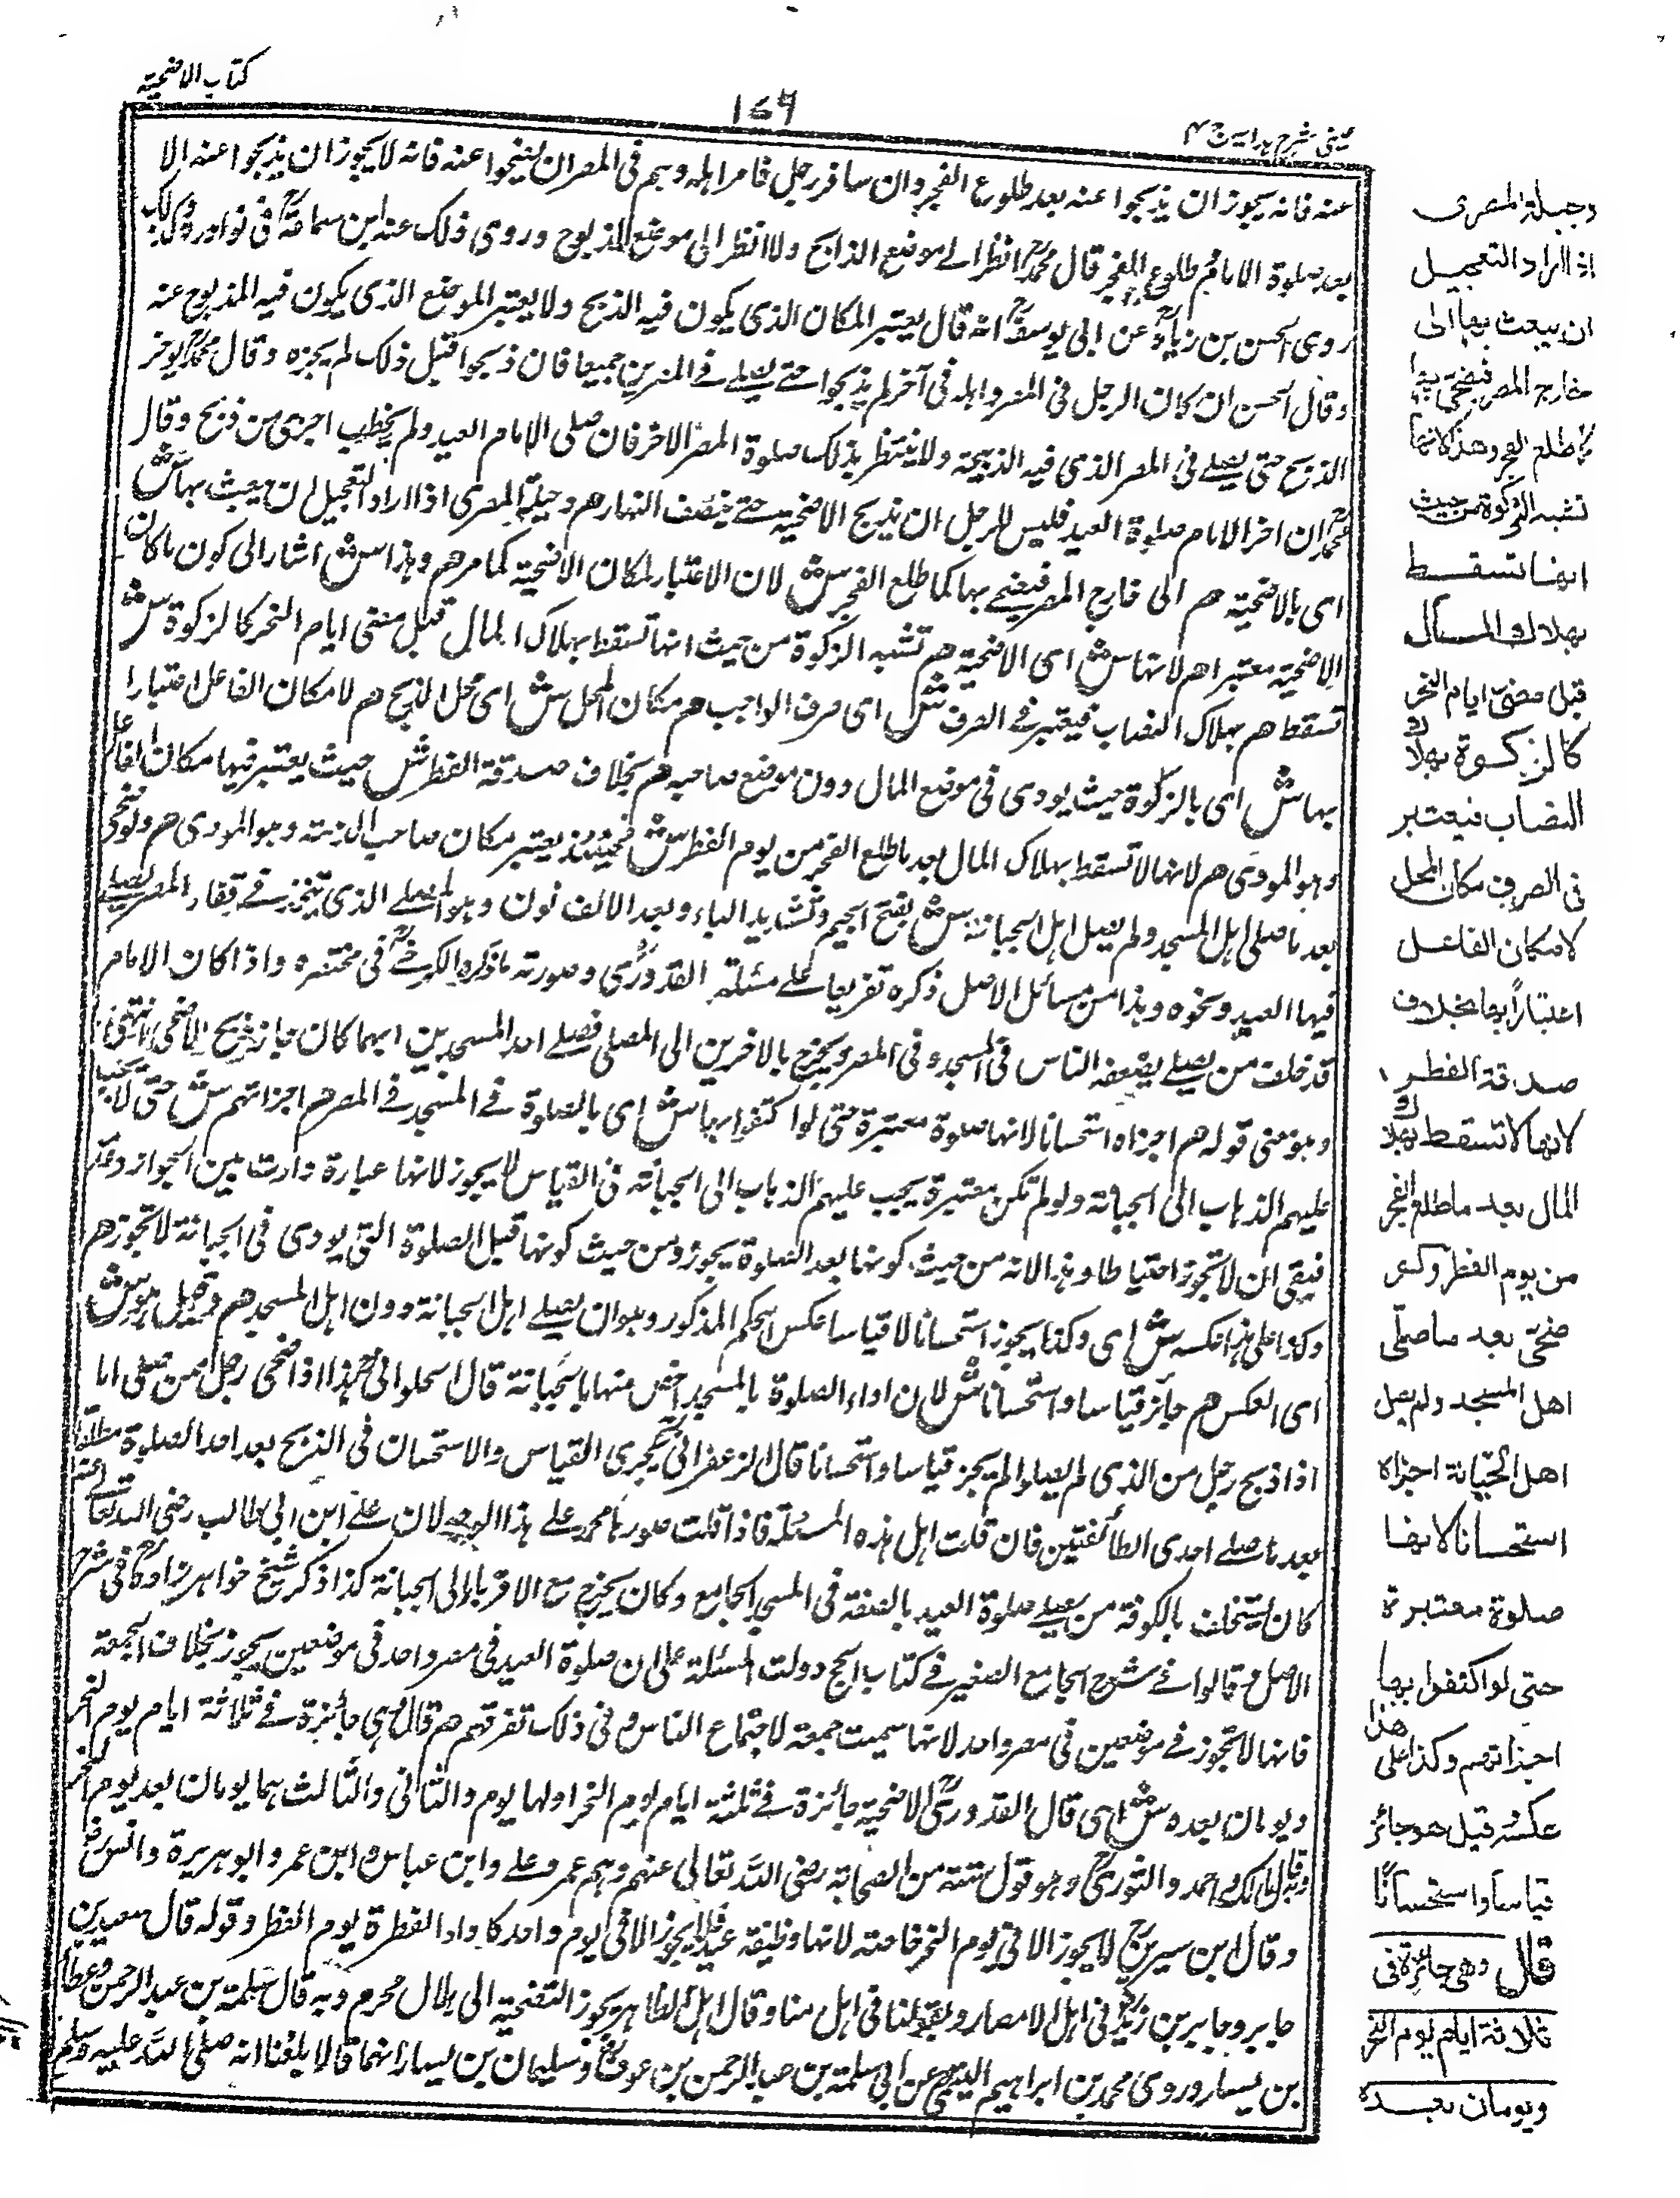 كتاب الاضحية
١٧٦
عينى شرح هداية ج ٤
عنه فانه يجوز ان يذبحوا عنه بعد طلوع الفجر وان سافر رجل فامر اهله وهم فى المصران يضحوا عنه فانه لا يجوز ان يذبحوا عنه الا
بعد صلوة الامام طلوع الفجر قال محمدؒ انظر الے موضع الذابح ولا انظر الى موضع المذبوح وروى ذلك عنه ابن سماعةؒ فى نوادره وكذلك
روى الحسن بن زيادؒ عن ابى يوسفؒ انه قال يعتبر المكان الذى يكون فيه الذبح ولا يعتبر الموضع الذى يكون فيه المذبوح عنه
وقال الحسن ان كان الرجل فى المصر واهله فى آخر لم يذبحوا حتے يصلے فے المصرين جميعا فان ذبحوا قبل ذلك لم يجزه وقال محمدؒ يوخر
الذبح حتى يصلے فى المصر الذى فيه الذبيحة ولا ينتظر بذلك صلوة المصر الاخر فان صلى الامام العيد ولم يخطب اجزى من ذبح وقال
محمدؒ ان اخر الامام صلوة العيد فليس للرجل ان يذبح الاضحية حتے ينتصف النهار هم وحيلة المصرى اذا اراد التعجيل ان يبعث بها ش
اى بالاضحية هم الى خارج المصر فيضحے بها كما طلع الفجر ش لان الاعتبار لمكان الاضحية كما مر هم وهذا ش اشار الى كون مكان
الاضحية معتبرا هم لانها ش اى الاضحية هم تشبه الزكوة من حيث انها تسقط بهلاك المال قبل مضى ايام النحر كالزكوة ش
تسقط هم بهلاك النصاب فيعتبر فے الصرف ش اى صرف الواجب هم مكان المحل ش اى محل الذبح هم لا مكان الفاعل اعتبارا
بها ش اى بالزكوة حيث يودى فى موضع المال دون موضع صاحبه هم بخلاف صدقة الفطر ش حيث يعتبر فيها مكان الفاعل
وهو المودى هم لانها لا تسقط بهلاك المال بعد ما طلع الفجر من يوم الفطر ش فحينئذ يعتبر مكان صاحب الذمة وهو المودى هم ولو ضحى
بعد ما صلى اهل المسجد ولم يصل اهل الجبانة ش بفتح الجيم وتشديد الباء وبعد الالف نون وهو المصلے الذى يتخذ فے فناء المصر يصلے
فيها العيد ونحوه وهذا من مسائل الاصل ذكره تفريعا علے مسئلة القدورىؒ وصورته ما ذكره الكرخےؒ فى مختصره واذا كان الامام
قد خلف من يصلے بضعفه الناس فى المسجد وفى المصر ويخرج بالاخرين الى المصلى فصلے احد المسجدين ايهما كان جاز ذبح الاضاحى انتهى
وهو معنى قوله هم اجزاه استحسانا لانها صلوة معتبرة حتى لو اكتفوا بها ش اى بالصلوة فے المسجد فے المصر هم اجزاتهم ش حتى لا يجب
عليهم الذهاب الى الجبانة ولو لم تكن معتبرة يجب عليهم الذهاب الى الجبانة فى القياس لا يجوز لانها عبارة دارت بين الجواز وعدمه
فينبغى ان لا تجوز احتياطا وهذا لانه من حيث كونها بعد الصلوة يجوز ومن حيث كونها قبل الصلوة التى يودى فى الجبانة لا تجوز هم
وكذا على هذا عكسه ش اى وكذا يجوز استحسانا لا قياسا عكس الحكم المذكور وهو ان يصلے اهل الجبانة دون اهل المسجد هم وقيل هو ش
اى العكس هم جائز قياسا واستحسانا ش لان اداء الصلوة بالمسجد اخص منها بالجبانة قال الحلوانى هذا اذا ضحى رجل ممن صلى اما
اذا ذبح رجل من الذى لم يصلوا لم يجز قياسا واستحسانا قال الزعفرانىؒ يجرى القياس والاستحسان فى الذبح بعد احد الصلوة مطلقا
بعد ما صلے احدى الطائفتين فان قلت اهل هذه المسئلة فاذا قلت صورها محمد على هذا الوجه لان علے ابن ابى طالب رضى الله تعالى عنه
كان يستخلف بالكوفة من يصلے صلوة العيد بالضعفة فى المسجد الجامع وكان يخرج مع الاقرباء الى الجبانة كذا ذكر شيخ خواهر زادهؒ فى شرح
الاصل وقالوا فے شرح الجامع الصغير فے كتاب الحج دولت المسئلة على ان صلوة العيد فى مصر واحد فى موضعين يجوز بخلاف الجمعة
فانها لا تجوز فے موضعين فى مصر واحد لانها سميت جمعة لاجتماع الناس وفى ذلك تفرقهم هم قال وهى جائزة فے ثلاثة ايام يوم النحر
ويومان بعده ش اى قال القدورىؒ الاضحية جائزة فے ثلثة ايام يوم النحر اولها يوم والثانى والثالث هما يومان بعد يوم النحر
وبه قال مالك واحمد والثورىؒ وهو قول ستة من الصحابة رضى الله تعالى عنهم وهم عمر وعلے وابن عباس وابن عمر وابو هريرة وانس رض
وقال ابن سيرينؒ لا يجوز الا فى يوم النحر خاصة لانها وظيفة عيد فلا يجوز الا فى يوم واحد كاداء الفطرة يوم الفطر وقوله قال سعيد بن
جابر وجابر بن زيدؒ فى اهل الامصار وبقولنا فى اهل منا وقال اهل الظاهر يجوز التضحية الى هلال محرم وبه قال سلمة بن عبد الرحمن وعطاء
بن يسار وروى محمد بن ابراهيم التيمى عن ابى سلمة بن عبد الرحمن بن عوفؓ وسليمان بن يسار انهما قالا بلغنا انه صلى الله عليه وسلم
وحيلة المصرى
اذا اراد التعجيل
ان يبعث بها الى
خارج المصر فيضحى بها
كما طلع الفجر وهذا لانها
تشبه الزكوة من حيث
انها تسقط
بهلاك المال
قبل مضى ايام النحر
كالزكوة بهلاك
النصاب فيعتبر
فى الصرف مكان المحل
لا مكان الفاعل
اعتباراً بها بخلاف
صدقة الفطر
لانها لا تسقط بهلاك
المال بعد ما طلع الفجر
من يوم الفطر ولو
ضحى بعد ما صلى
اهل المسجد ولم يصل
اهل الجبّانة اجزاه
استحسانا لانها
صلوة معتبرة
حتى لو اكتفوا بها
اجزاتهم وكذا على هذا
عكسه وقيل هو جائز
قياساً واستحساناً
قال وهى جائزة فى
ثلاثة ايام يوم النحر
ويومان بعده